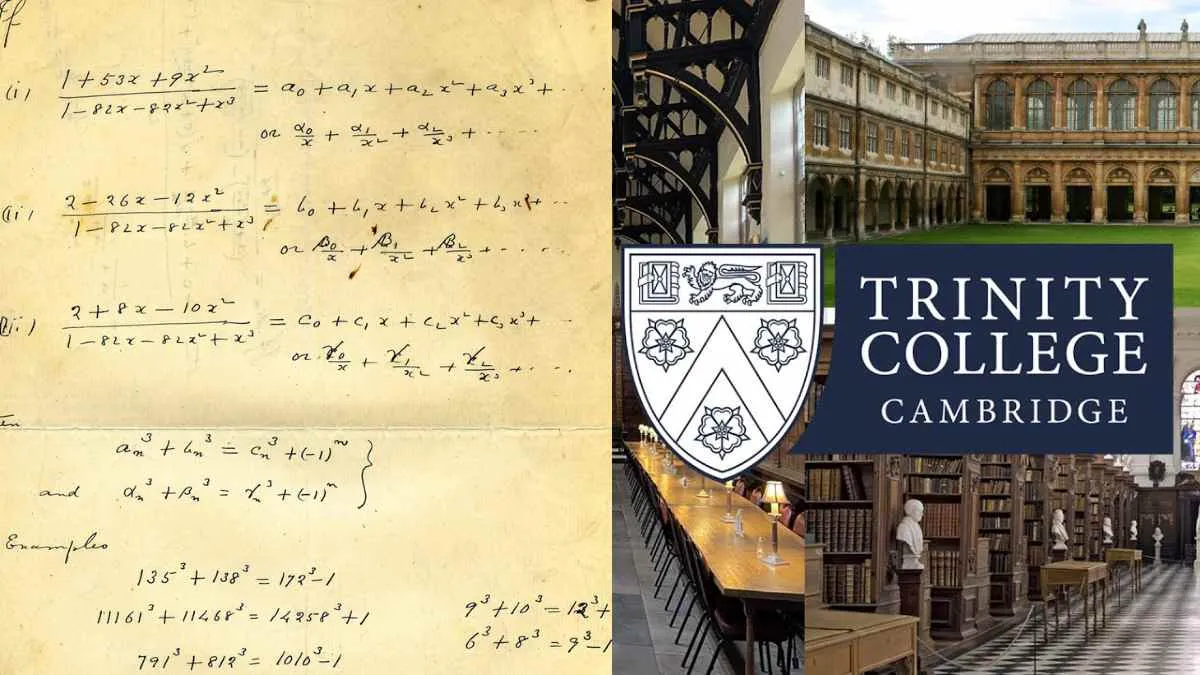 If
(i) (1 + 53x + 9x²)/(1 - 82x - 82x² + x³) = a₀ + a₁x + a₂x² + a₃x³ + ....
or α₀/x + α₁/x² + α₂/x³ + ....
(ii) (2 - 26x - 12x²)/(1 - 82x - 82x² + x³) = b₀ + b₁x + b₂x² + b₃x³ + ...
or β₀/x + β₁/x² + β₂/x³ + ....
(iii) (2 + 8x - 10x²)/(1 - 82x - 82x² + x³) = c₀ + c₁x + c₂x² + c₃x³ + ...
or γ₀/x + γ₁/x² + γ₂/x³ + ....
en
aₙ³ + bₙ³ = cₙ³ + (-1)ⁿ }
and αₙ³ + βₙ³ = γₙ³ + (-1)ⁿ
Examples
135³ + 138³ = 172³ - 1
11161³ + 11468³ = 14258³ + 1
791³ + 812³ = 1010³ - 1
9³ + 10³ = 12³ +
6³ + 8³ = 9³ - 1
TRINITY
COLLEGE
CAMBRIDGE